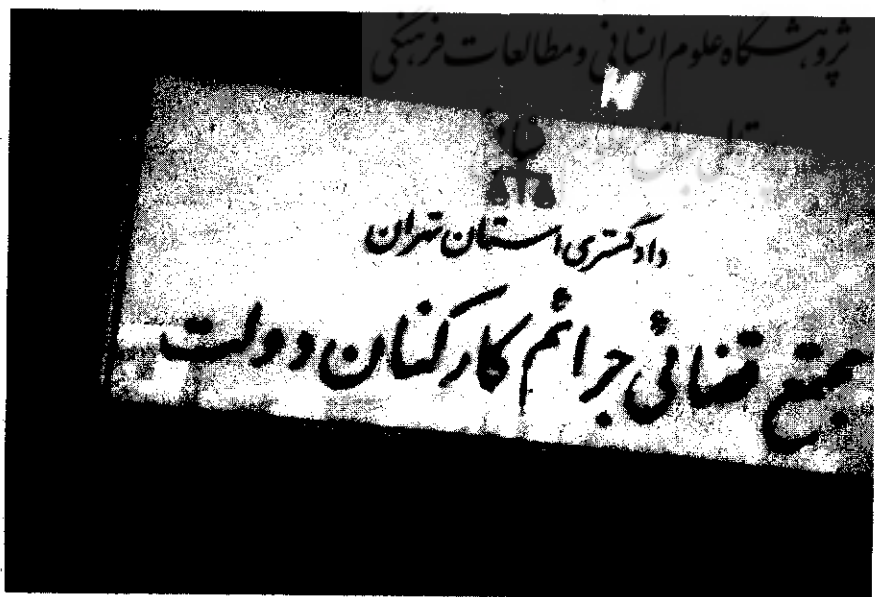 پژوهشگاه علوم انسانی و مطالعات فرهنگی
دادگستری استان تهران
مجتمع قضائی جرائم کارکنان دولت